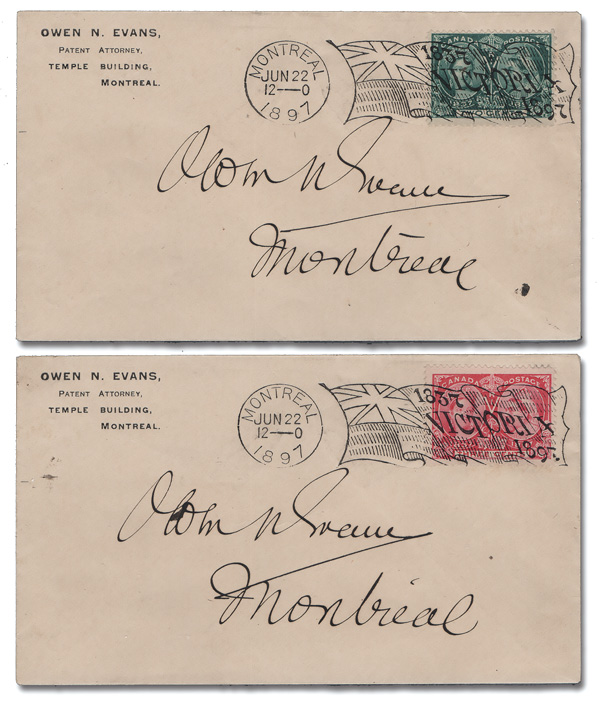 OWEN N. EVANS,
PATENT ATTORNEY,
TEMPLE BUILDING,
MONTREAL.
MONTREAL
JUN 22
12—0
1897
CANADA POSTAGE
1837
VICTORIA
1897
Owen N Evans
Montreal
OWEN N. EVANS,
PATENT ATTORNEY,
TEMPLE BUILDING,
MONTREAL.
MONTREAL
JUN 22
12—0
1897
CANADA POSTAGE
1837
VICTORIA
1897
Owen N Evans
Montreal